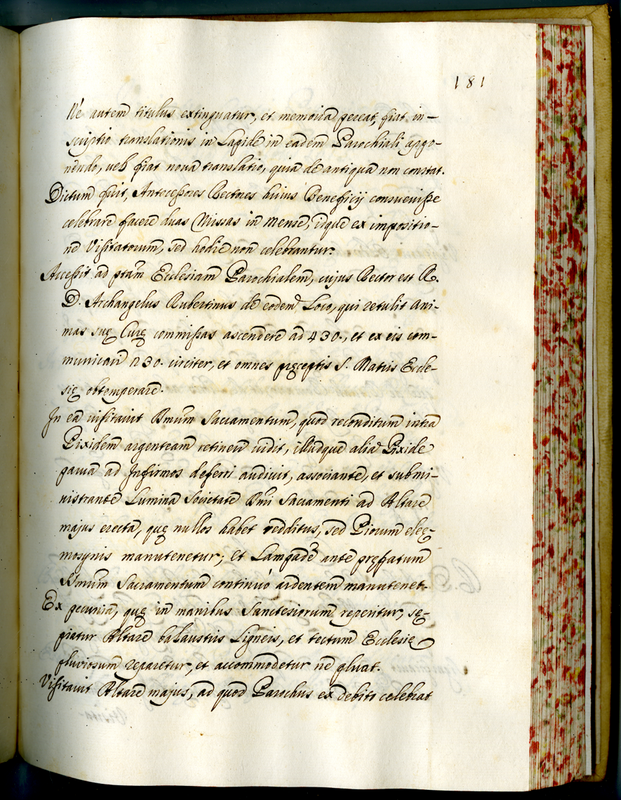 181
Ne autem titulus extinguatur, et memoria pereat, fiat in-
scriptio translationis in Lapide in eadem Parochiali appo-
nendo, vel fiat nova translatio, quia de antiqua non constat.
Dictum fuit, Antecessores Rectores huius Beneficij consuevisse
celebrare facere duas Missas in Mense, idque ex impositio-
ne Visitatorum, sed hodie non celebrantur.
Accessit ad ptam Ecclesiam Parochialem, cujus Rector est R.
D. Archangelus Rubertinus de eodem Loco, qui retulit Ani-
mas suę Curę commissas ascendere ad 430., et ex eis com-
municari 230. circiter, et omnes pręceptis S. Matris Eccle-
się obtemperare.
In ea visitavit Smum Sacramentum, quod reconditum intra
Pixidem argenteam retineri vidit, illudque alia Pixide
parva ad Infirmos deferri audivit, associante, et submi-
nistrante Lumina Societate Smi Sacramenti ad Altare
majus erecta, quę nullos habet redditus, sed Piorum elee-
mosynis manutenetur; et Lampade ante pręfatum
Smum Sacramentum continuo ardentem manutenet.
Ex pecunia, quę in manibus Sanctesiorum reperitur, sę-
piatur Altare balaustris Ligneis, et tectum Ecclesię
pluviosum reparetur, et accommodetur ne pluat.
Visitavit Altare majus, ad quod Parochus ex debito celebrat